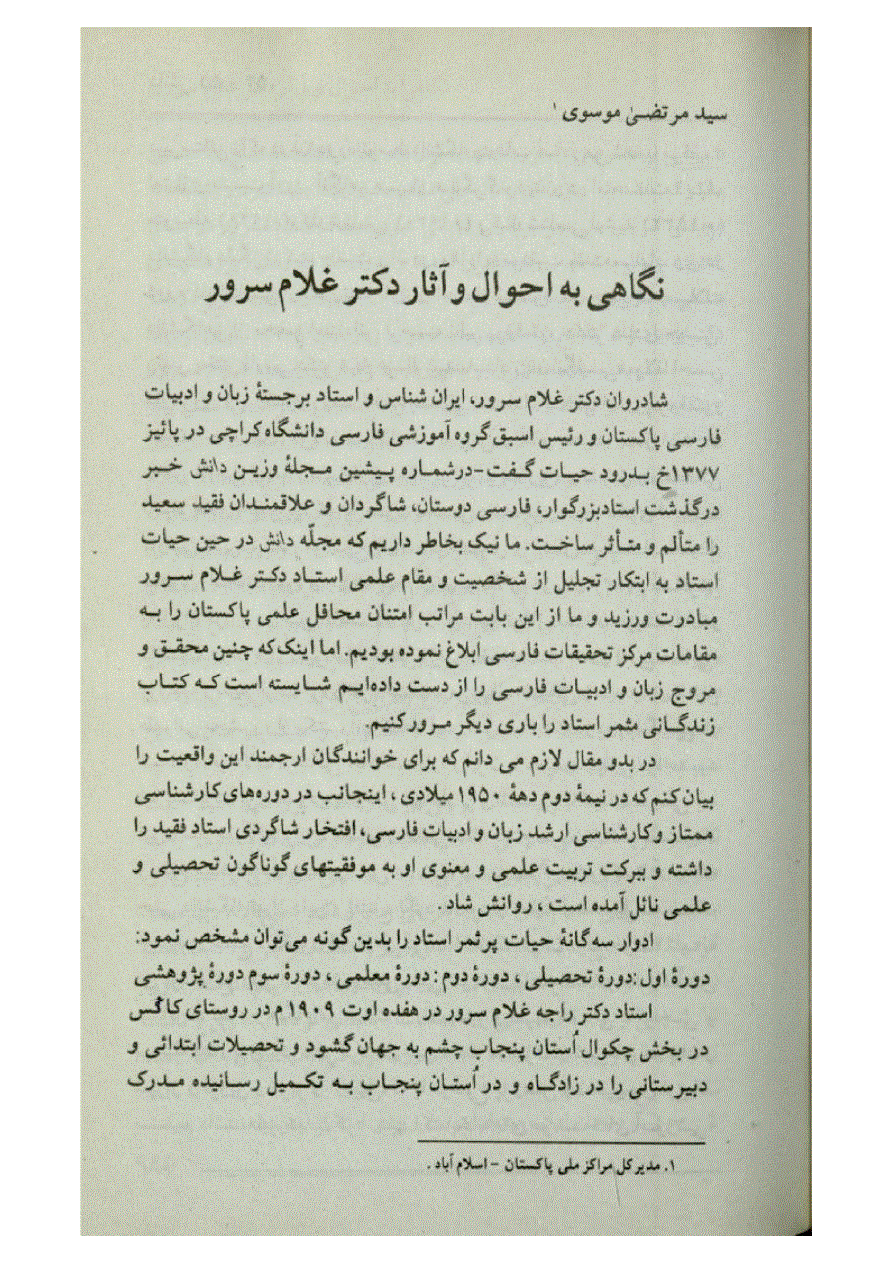 سید مرتضیٰ موسوی ۱
نگاهی به احوال و آثار دکتر غلام سرور
شادروان دکتر غلام سرور، ایران شناس و استاد برجستهٔ زبان و ادبیات
فارسی پاکستان و رئیس اسبق گروه آموزشی فارسی دانشگاه کراچی در پائیز
۱۳۷۷خ بدرود حیات گفت-درشماره پیشین مجلهٔ وزین دانش خبر
درگذشت استادبزرگوار، فارسی دوستان، شاگردان و علاقمندان فقید سعید
را متألم و متأثر ساخت. ما نیک بخاطر داریم که مجلّه دانش در حین حیات
استاد به ابتکار تجلیل از شخصیت و مقام علمی استاد دکتر غلام سرور
مبادرت ورزید و ما از این بابت مراتب امتنان محافل علمی پاکستان را به
مقامات مرکز تحقیقات فارسی ابلاغ نموده بودیم. اما اینک که چنین محقق و
مروج زبان و ادبیات فارسی را از دست داده‌ایم شایسته است که کتاب
زندگانی مثمر استاد را باری دیگر مرور کنیم.
در بدو مقال لازم می دانم که برای خوانندگان ارجمند این واقعیت را
بیان کنم که در نیمهٔ دوم دههٔ ۱۹۵۰ میلادی ، اینجانب در دوره‌های کارشناسی
ممتاز و کارشناسی ارشد زبان و ادبیات فارسی، افتخار شاگردی استاد فقید را
داشته و ببرکت تربیت علمی و معنوی او به موفقیتهای گوناگون تحصیلی و
علمی نائل آمده است ، روانش شاد.
ادوار سه گانهٔ حیات پرثمر استاد را بدین گونه می‌توان مشخص نمود:
دورهٔ اول :دورهٔ تحصیلی ، دورهٔ دوم : دورهٔ معلمی ، دورهٔ سوم دورهٔ پژوهشی
استاد دکتر راجه غلام سرور در هفده اوت ۱۹۰۹ م در روستای کاگس
در بخش چکوال اُستان پنجاب چشم به جهان گشود و تحصیلات ابتدائی و
دبیرستانی را در زادگاه و در اُستان پنجاب به تکمیل رسانیده مدرک
۱. مدیرکل مراکز ملی پاکستان - اسلام آباد .